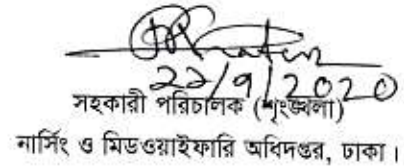 22/9/2020
সহকারী পরিচালক (শৃংঙ্খলা)
নার্সিং ও মিডওয়াইফারি অধিদপ্তর, ঢাকা।